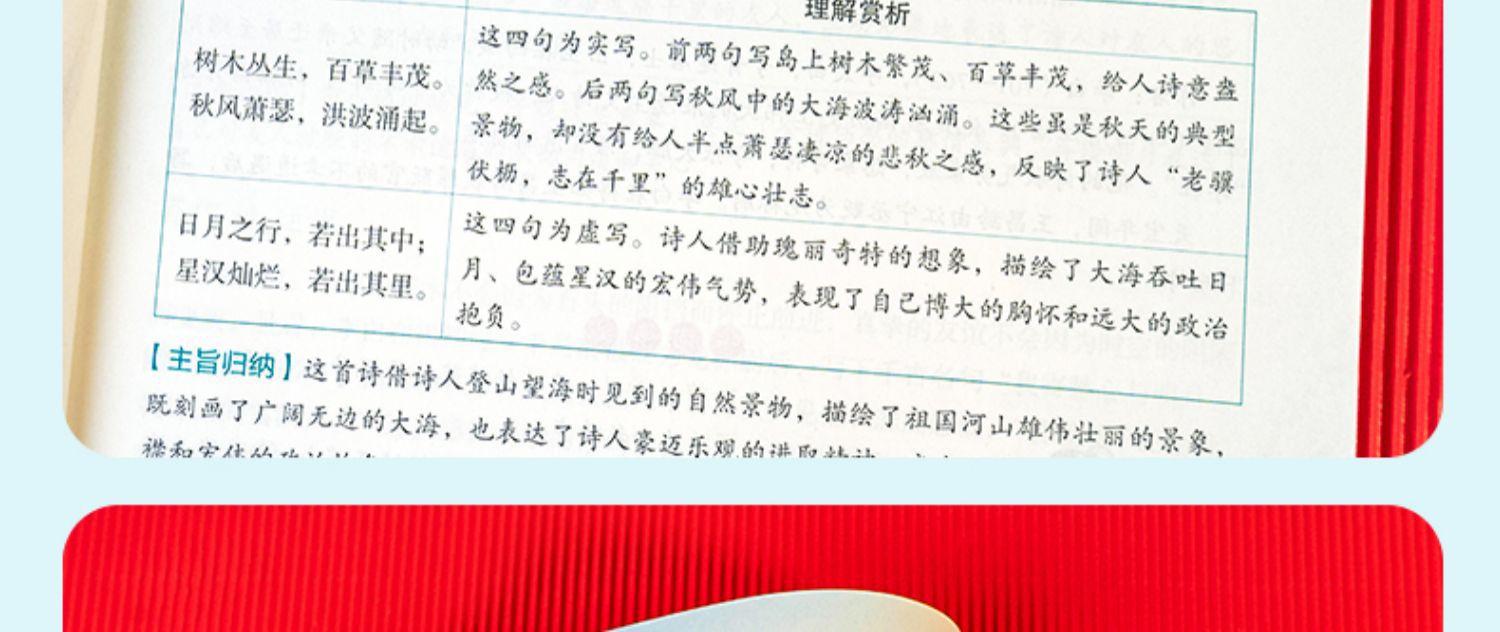 理解赏析
树木丛生，百草丰茂。
秋风萧瑟，洪波涌起。
这四句为实写。前两句写岛上树木繁茂、百草丰茂，给人诗意盎
然之感。后两句写秋风中的大海波涛汹涌。这些虽是秋天的典型
景物，却没有给人半点萧瑟凄凉的悲秋之感，反映了诗人“老骥
伏枥，志在千里”的雄心壮志。
日月之行，若出其中；
星汉灿烂，若出其里。
这四句为虚写。诗人借助瑰丽奇特的想象，描绘了大海吞吐日
月、包蕴星汉的宏伟气势，表现了自己博大的胸怀和远大的政治
抱负。
【主旨归纳】这首诗借诗人登山望海时见到的自然景物，描绘了祖国河山雄伟壮丽的景象，
既刻画了广阔无边的大海，也表达了诗人豪迈乐观的进取精神